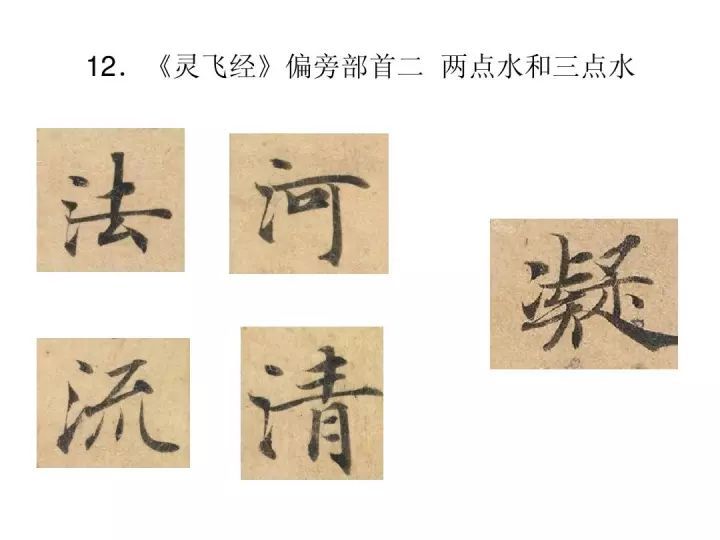 12．《灵飞经》偏旁部首二 两点水和三点水
法 河
凝
流 清